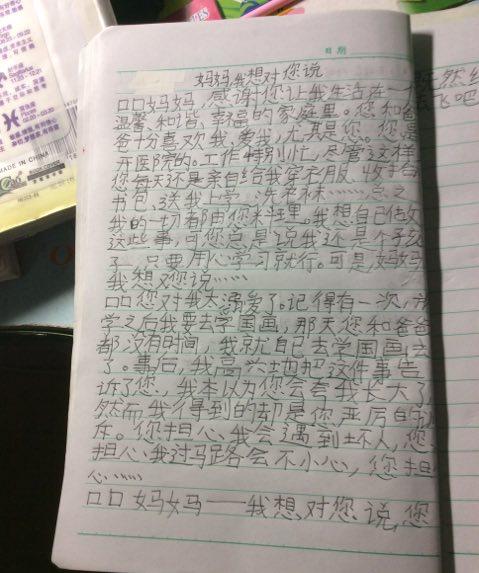 日期
妈妈,我想对您说
口口妈妈,感谢您让我生活在一个
温馨和谐、幸福的家庭里。您和爸
爸十分喜欢我,爱我,尤其是您。您是
开医院的。工作特别忙,尽管这样,
您每天还是亲自给我穿衣服、收拾
书包、送我上学、洗衣袜……总之,
我的一切都由您料理。我想自己做
这些事,可您总是说我还是个孩
子,只要用心学习就行。可是,妈妈
我想对您说……
口口您对我太溺爱了。记得有一次,放
学之后我要去学国画,那天您和爸爸
都没有时间,我就自己去学国画去
了。事后,我高兴地把这件事告
诉了您,我本以为您会夸我长大了,
然而我得到的却是您严厉的训
斥。您担心我会遇到坏人,您
担心我过马路会不小心,您担
心……
口口妈妈——我想对您说,您
既然
飞吧
MADE IN CHINA